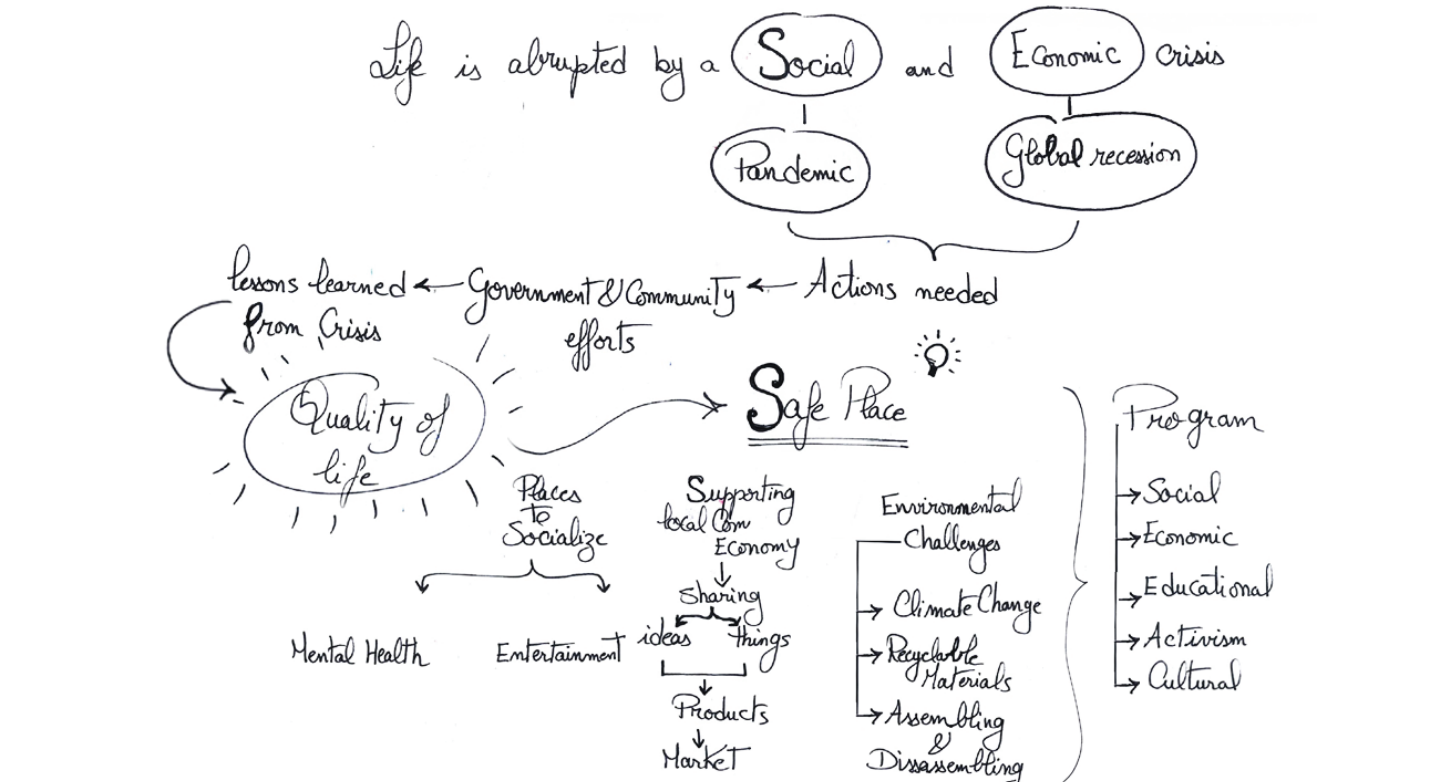 Life is abrupted by a Social and Economic crisis
Pandemic
Global recession
Actions needed
Government & Community
efforts
lessons learned
from Crisis
Quality of
life
Safe Place
Places
to
Socialize
Mental Health
Entertainment
Supporting
local Com
Economy
Sharing
ideas
things
Products
Market
Environmental
Challenges
Climate Change
Recyclable
Materials
Assembling
&
Dissassembling
Program
Social
Economic
Educational
Activism
Cultural